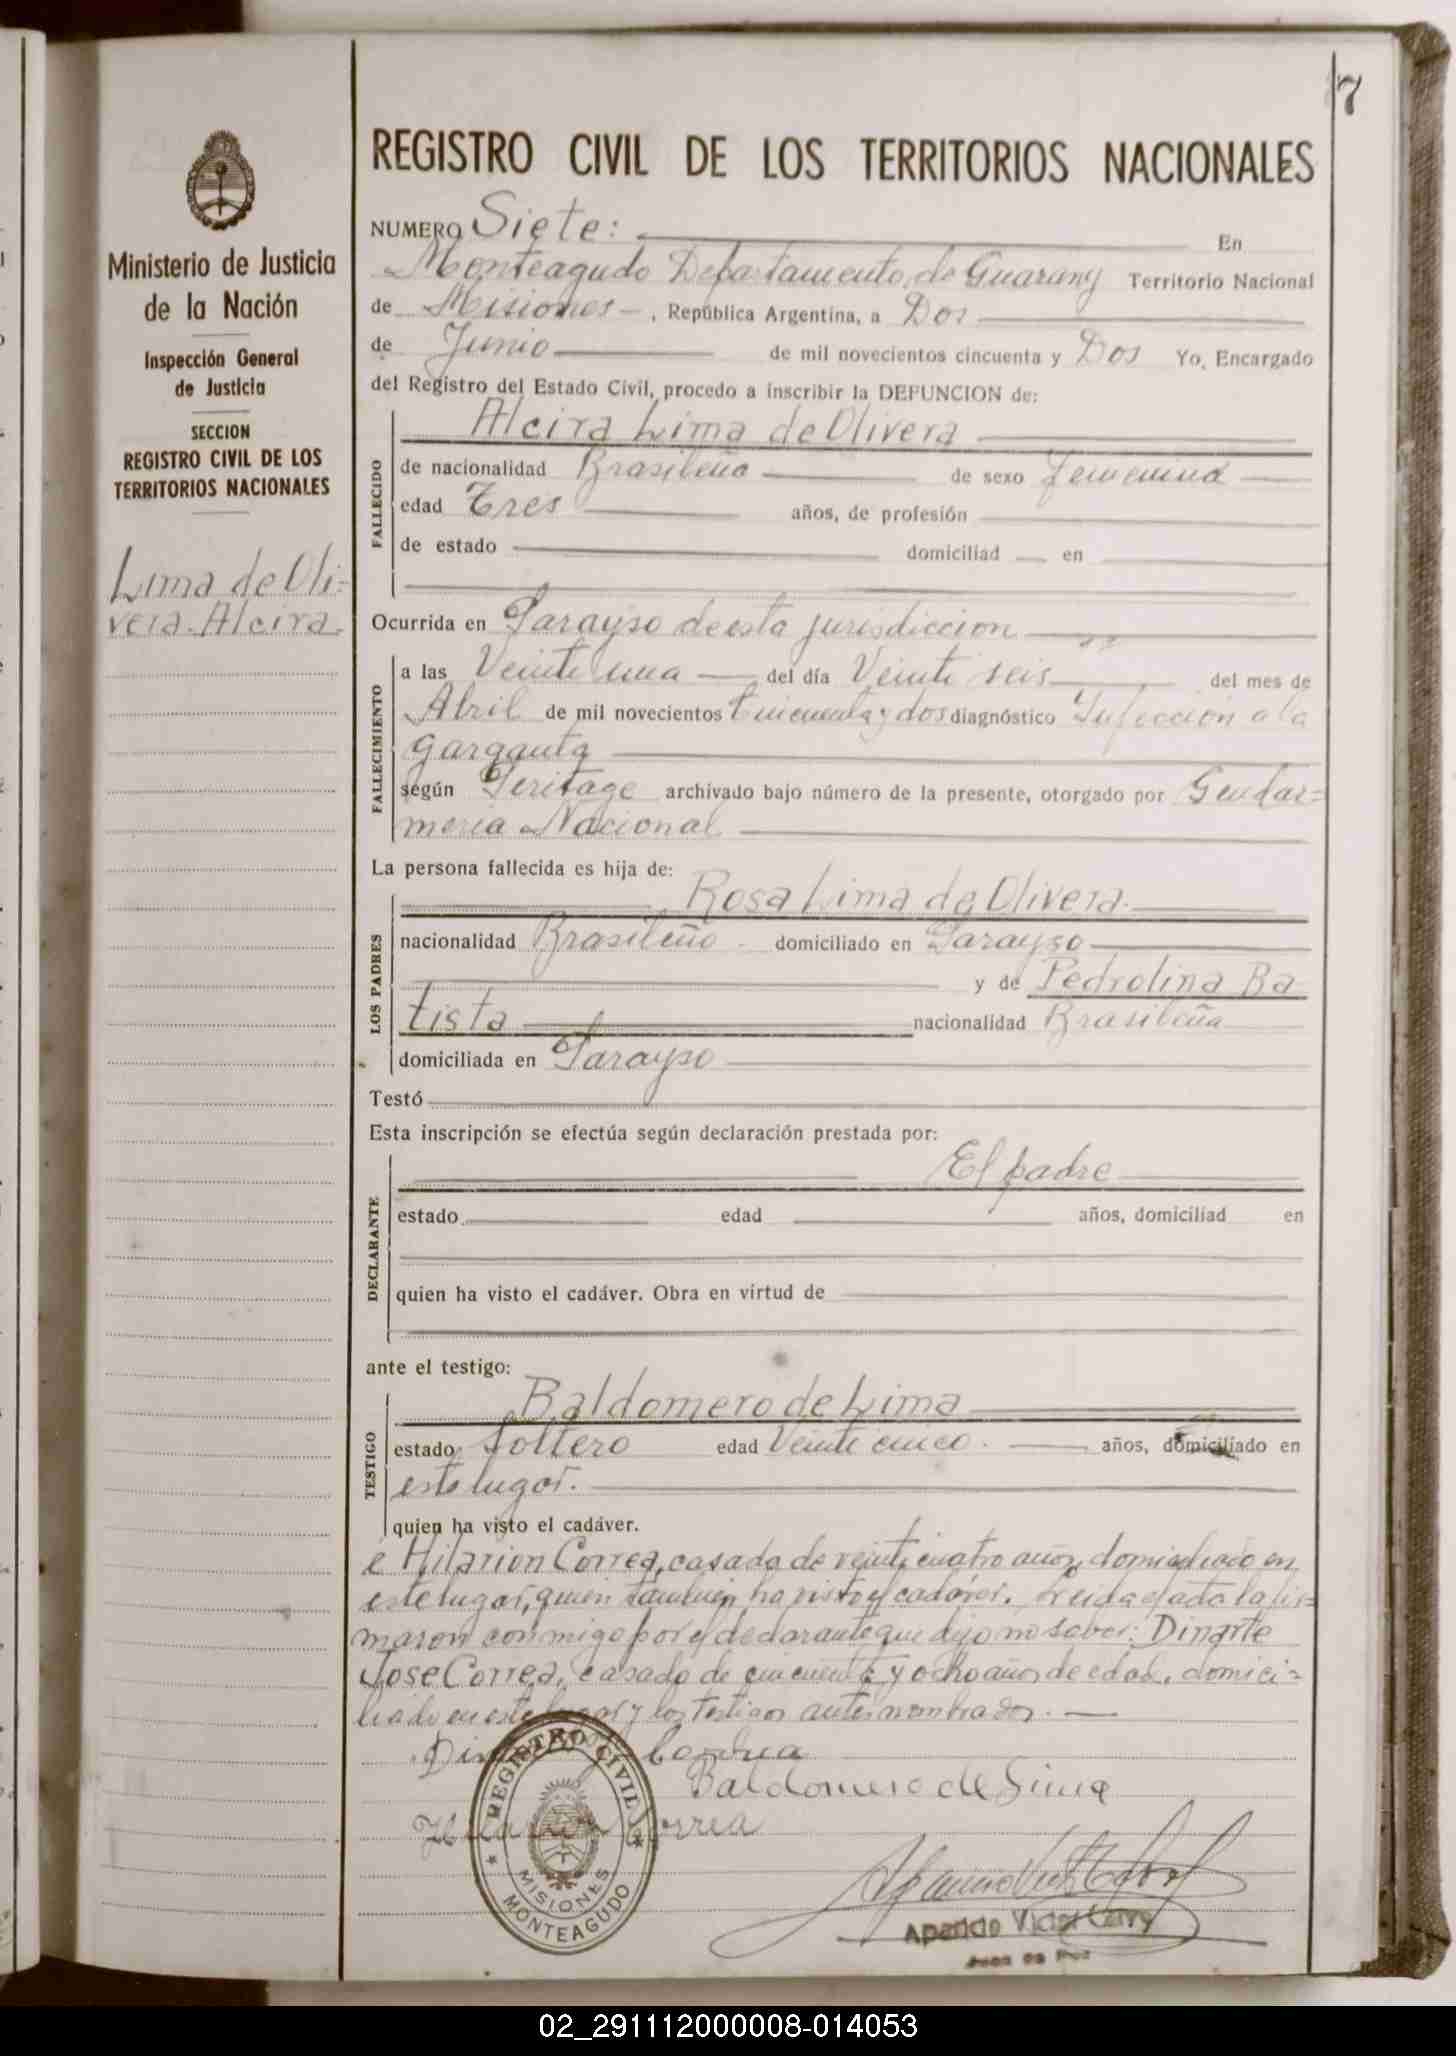 7
REGISTRO CIVIL DE LOS TERRITORIOS NACIONALES
Ministerio de Justicia
de la Nación
Inspección General
de Justicia
SECCION
REGISTRO CIVIL DE LOS
TERRITORIOS NACIONALES
Lima de Oli-
vera Alcira.
NUMERO Siete: En
Monteagudo Departamento de Guarany Territorio Nacional
de Misiones, República Argentina, a Dos
de Junio de mil novecientos cincuenta y Dos Yo, Encargado
del Registro del Estado Civil, procedo a inscribir la DEFUNCION de:
FALLECIDO
Alcira Lima de Olivera
de nacionalidad Brasileña de sexo femenina
edad Tres años, de profesión
de estado domiciliad en
Ocurrida en Parayso de esta jurisdiccion
FALLECIMIENTO
a las Veinte una del día Veinte seis del mes de
Abril de mil novecientos Cincuenta y dos diagnóstico Infeccion a la
garganta
según Peritage archivado bajo número de la presente, otorgado por Gendar=
meria Nacional
La persona fallecida es hija de:
LOS PADRES
Rosa Lima de Olivera.
nacionalidad Brasileño domiciliado en Parayso
y de Pedrolina Ba
tista nacionalidad Brasileña
domiciliada en Parayso
Testó
Esta inscripción se efectúa según declaración prestada por:
DECLARANTE
El padre
estado edad años, domiciliad en
quien ha visto el cadáver. Obra en virtud de
ante el testigo:
TESTIGO
Baldomero de Lima
estado Soltero edad Veinte cinco. años, domiciliado en
este lugar.
quien ha visto el cadáver.
é Hilarion Correa, casado de veinte cuatro años, domiciliado en
este lugar, quien tambien ha visto el cadáver. Leida el acta la fir=
maron conmigo por el declarante que dijo no saber: Dinarte
Jose Correa, casado de cincuenta y ocho años de edad, domici=
liado en este lugar y los testigos antes nombrados.
Baldomero de Lima
Correa
REGISTRO CIVIL
MISIONES
MONTEAGUDO
Aparicio Vidal
Juez de Paz
02_291112000008-014053